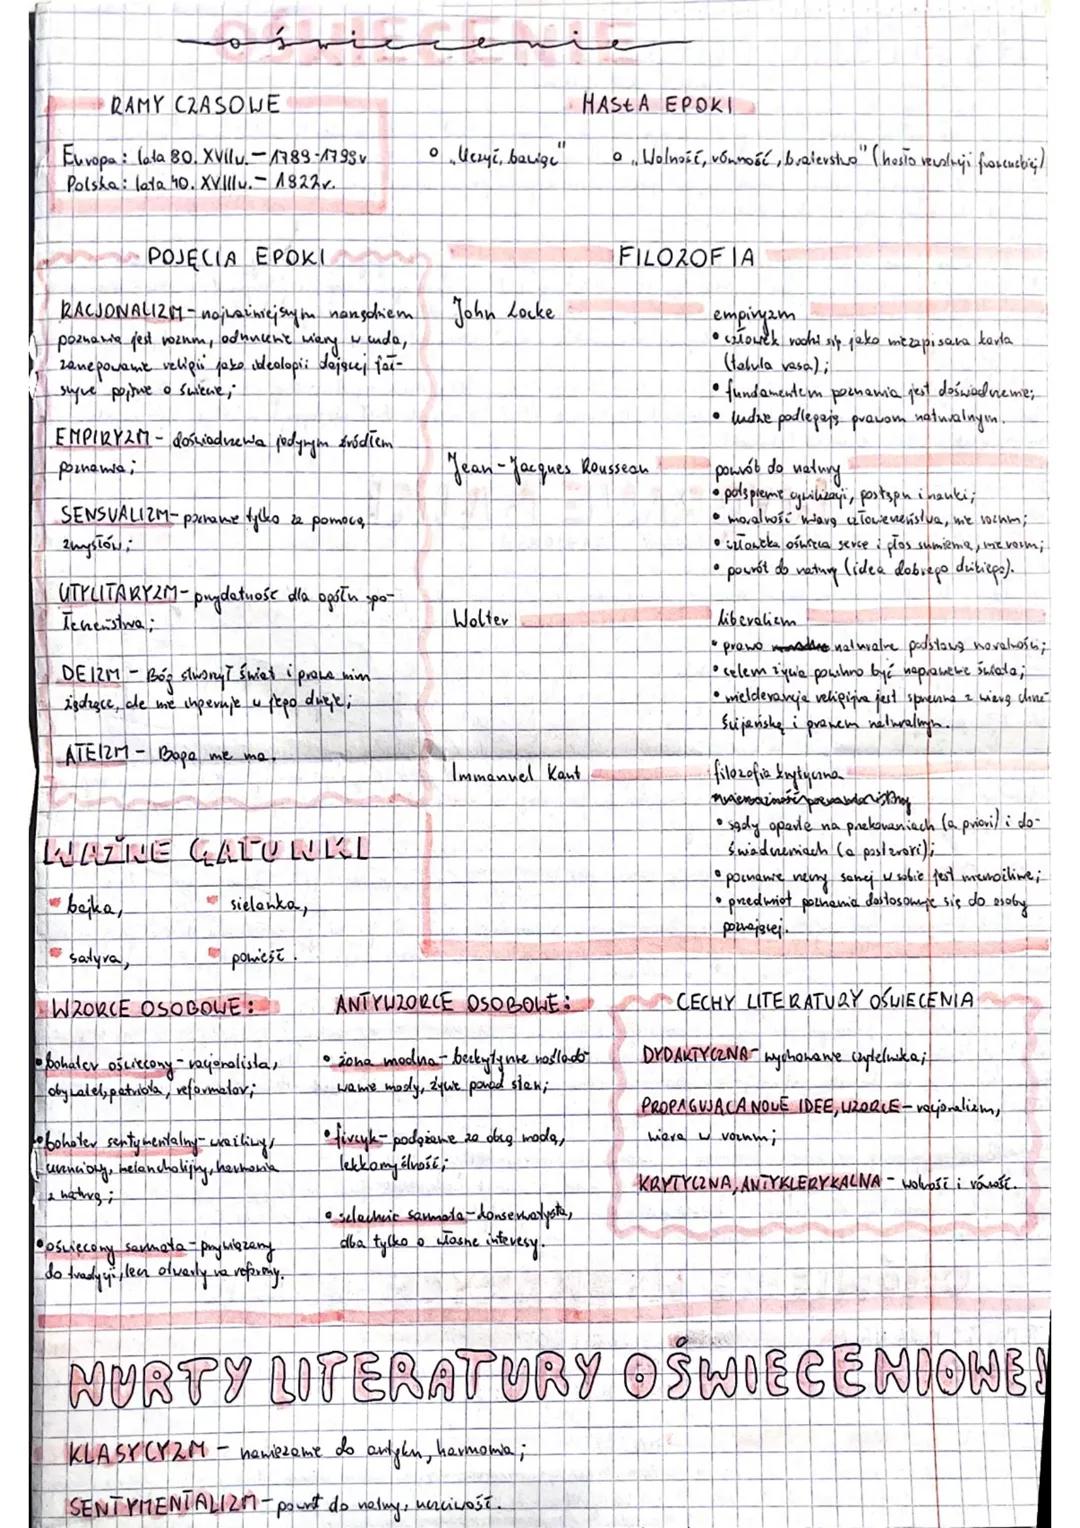 oświecenie
RAMY CZASOWE
Europa: lata 80. XVIIw. – 1789-1799r
Polska: lata 40. XVIIIw. – 1822r.
HASŁA EPOKI
"Uczyć, bawiąc"
"Wolność, równość, braterstwo" (hasło rewolucji francuskiej)
POJĘCIA EPOKI
RACJONALIZM – najważniejszym narzędziem
poznania jest rozum, odrzucenie wiary w cuda,
zanegowanie religii jako ideologii dającej fał-
szywe pojęcie o świecie;
EMPIRYZM – doświadczenia jedynym źródłem
poznania;
SENSUALIZM – poznanie tylko za pomocą
zmysłów;
UTYLITARYZM – przydatność dla ogółu spo-
łeczeństwa;
DEIZM – Bóg stworzył świat i prawa nim
rządzące, ale nie ingeruje w jego dzieje;
ATEIZM – Boga nie ma.
FILOZOFIA
John Locke
empiryzm
• człowiek rodzi się jako niezapisana karta
(tabula rasa);
• fundamentem poznania jest doświadczenie;
• ludzie podlegają prawom naturalnym.
Jean-Jacques Rousseau
powrót do natury
• potępienie cywilizacji, postępu i nauki;
• moralność miarą człowieczeństwa, nie rozum;
• człowieka oświeca serce i głos sumienia, nie rozum;
• powrót do natury (idea dobrego dzikiego).
Wolter
liberalizm
• prawo naturalne podstawą moralności;
• celem życia powinno być naprawienie świata;
• nietolerancja religijna jest sprzeczna z wiarą chrze-
ścijańską i prawem naturalnym.
Immanuel Kant
filozofia krytyczna
• sądy oparte na przekonaniach (a priori) i do-
świadczeniach (a posteriori);
• poznanie rzeczy samej w sobie jest niemożliwe;
• przedmiot poznania dostosowuje się do osoby
poznającej.
WAŻNE GATUNKI
bajka,
sielanka,
satyra,
powieść.
WZORCE OSOBOWE:
• bohater oświecony – racjonalista,
obywatel, patriota, reformator;
• bohater sentymentalny – wrażliwy,
uczuciowy, melancholijny, harmonia
z naturą;
• oświecony sarmata – przywiązany
do tradycji, lecz otwarty na reformy.
ANTYWZORCE OSOBOWE:
• żona modna – bezkrytyczne naślado-
wanie mody, życie ponad stan;
• fircyk – podążanie za obcą modą,
lekkomyślność;
• szlachcic sarmata – konserwatysta,
dba tylko o własne interesy.
CECHY LITERATURY OŚWIECENIA
DYDAKTYCZNA – wychowanie czytelnika;
PROPAGUJĄCA NOWE IDEE, WZORCE – racjonalizm,
wiara w rozum;
KRYTYCZNA, ANTYKLERYKALNA – wolność i równość.
NURTY LITERATURY OŚWIECENIOWEJ
KLASYCYZM – nawiązanie do antyku, harmonia;
SENTYMENTALIZM – powrót do natury, uczciwość.